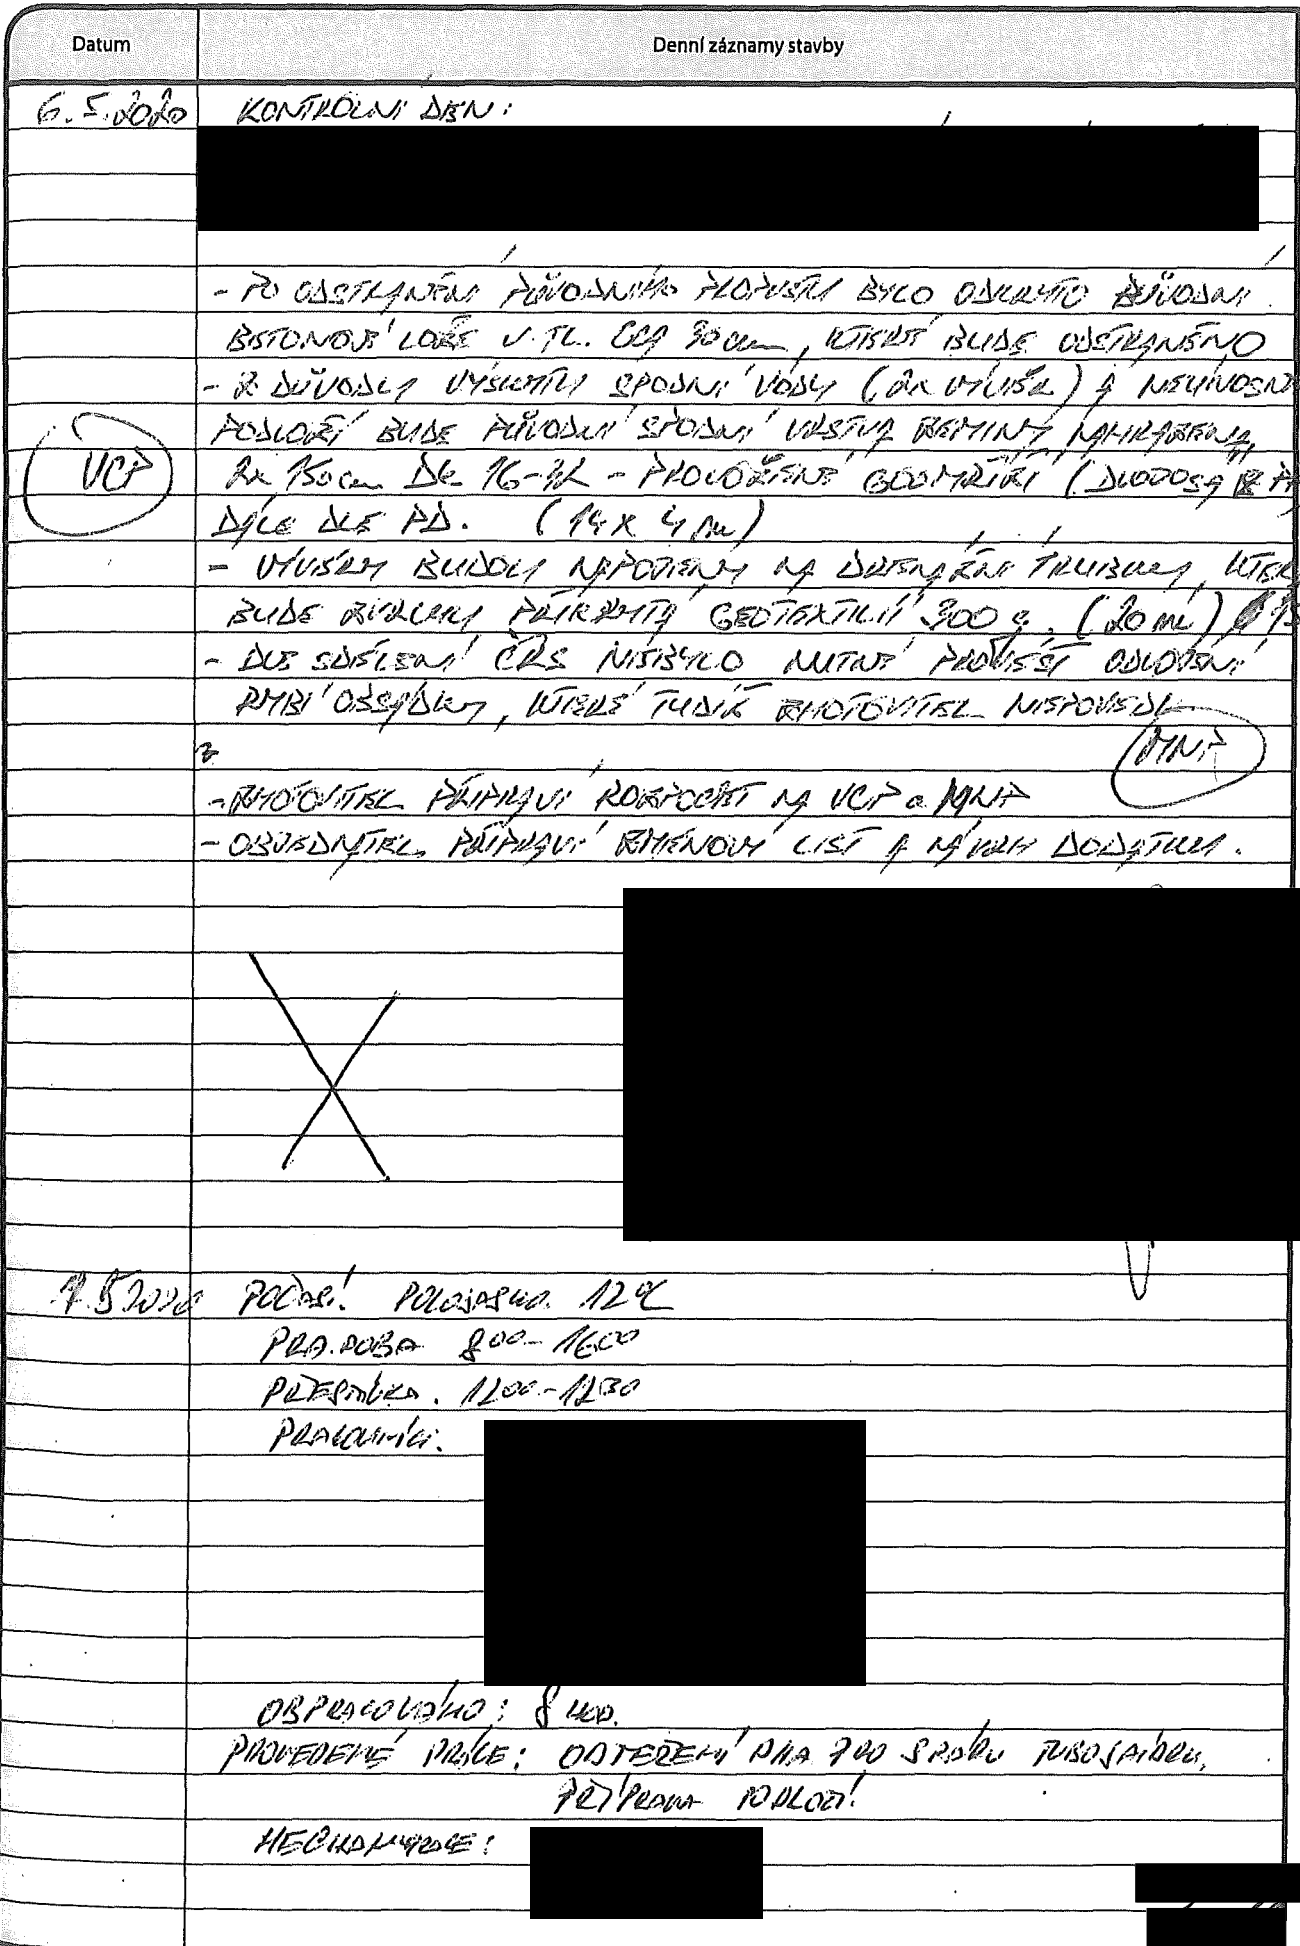 Datum Denní záznamy stavby
6.5.2020 KONTROLNÍ DEN:
- PO ODSTRANĚNÍ PŮVODNÍHO PROPUSTU BYLO ODKRYTO PŮVODNÍ
BETONOVÉ LOŽE V TL. CCA 30cm, KTERÉ BUDE ODSTRANĚNO
- Z DŮVODU VÝSKYTU SPODNÍ VODY (2x VÝVĚR) A NEÚNOSN
PODLOŽÍ BUDE PŮVODNÍ SPODNÍ VRSTVA ZEMINY NAHRAZENA
VCP 2x 150cm DK 16-32 - PROLOŽENÉ GEOMŘÍŽÍ
DÁLE DLE PD. (14 x 4m)
- VÝVĚRY BUDOU NAPOJENY NA DRENÁŽNÍ TRUBKU, KTER
BUDE ZVRCHU PŘIKRYTÁ GEOTEXTILIÍ 300g. (20m)
- DLE SDĚLENÍ ČRS NEBYLO NUTNÉ PROVÉST ODLOVENÍ
RYBÍ OBSÁDKY, KTERÉ TUDÍŽ ZHOTOVITEL NEPROVEDL
MNP
- ZHOTOVITEL PŘIPRAVÍ ROZPOČET NA VCP a MNP
- OBJEDNATEL PŘIPRAVÍ ZMĚNOVÝ LIST A NÁVRH DODATKU.
7.5.2020 POČASÍ: POLOJASNO. 12°C
PRA.DOBA 800-1600
PŘESTÁVKA. 1200-1230
PRACOVNÍCI:
ODPRACOVÁNO: 8 HOD.
PROVEDENÉ PRÁCE: ODTĚŽENÍ DNA PRO SPÁRU TUBOSAIDRU,
PŘÍPRAVA PODLOŽÍ.
MECHANIZACE: